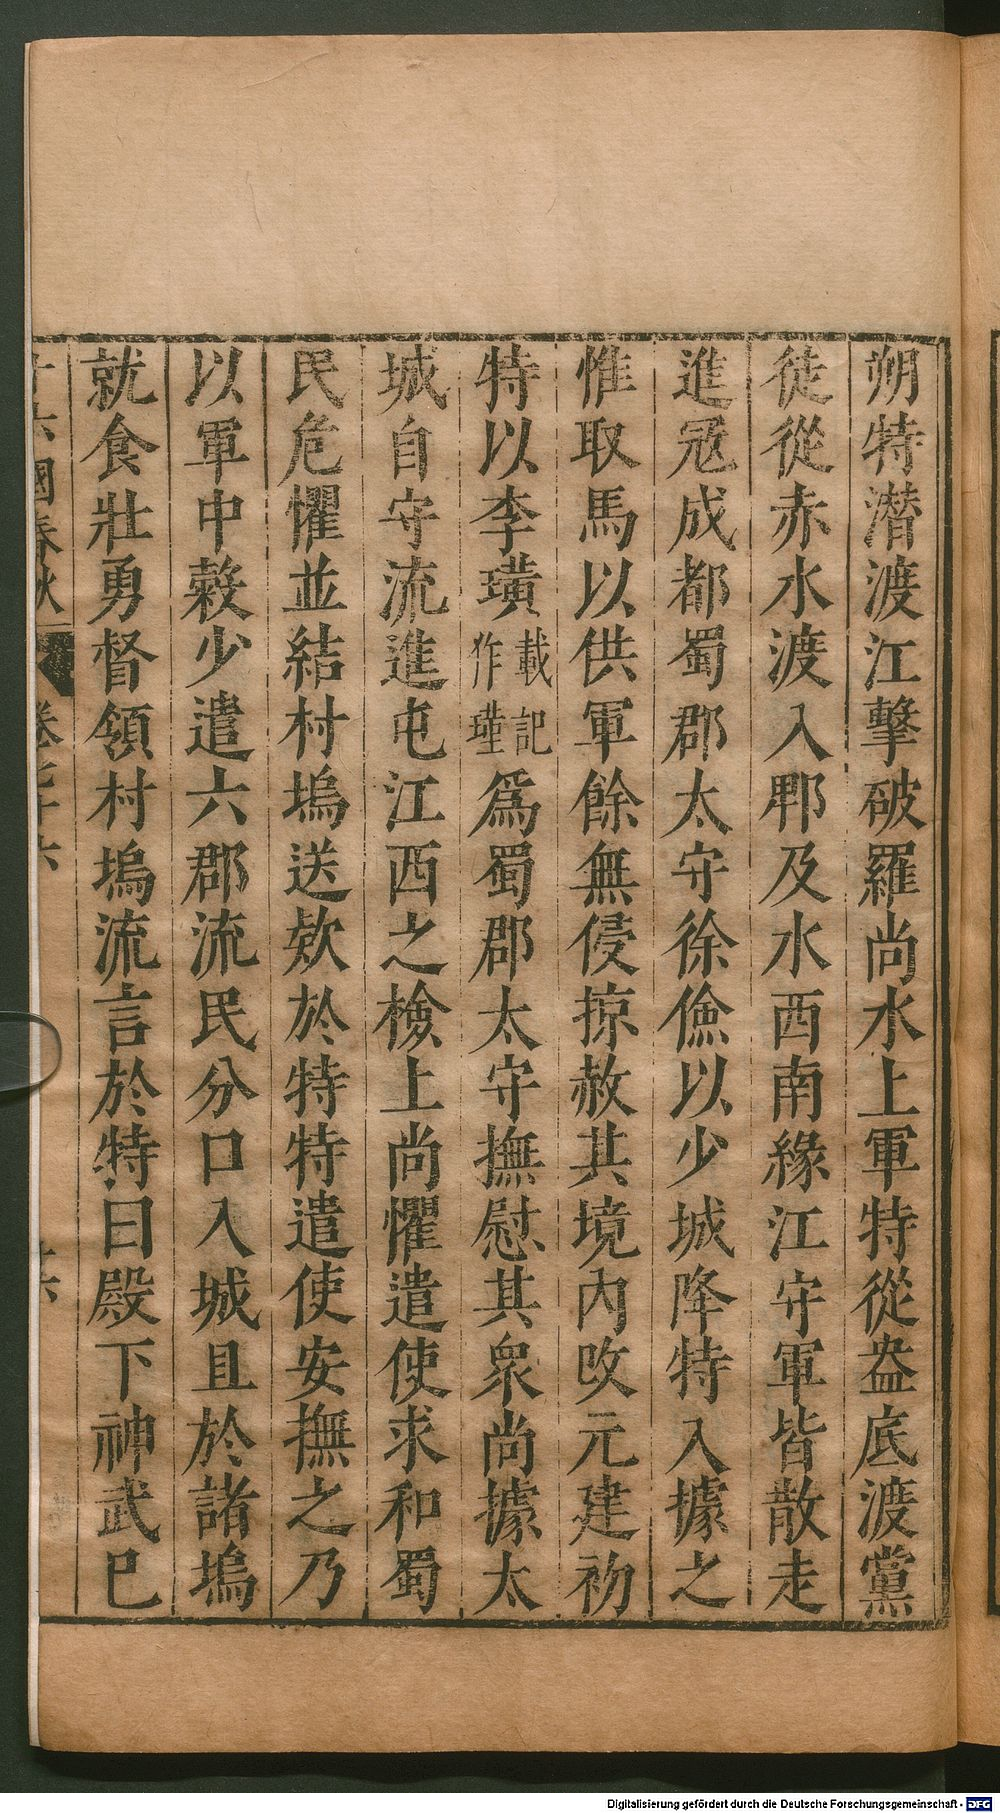 朔特潛渡江擊破羅尚水上軍特從盎底渡黨
徒從赤水渡入郫及水西南緣江守軍皆散走
進冦成都蜀郡太守徐儉以少城降特入據之
惟取馬以供軍餘無侵掠赦其境內改元建初
特以李璜載記作瑾爲蜀郡太守撫慰其衆尚據太
城自守流進屯江西之檢上尚懼遣使求和蜀
民危懼並結村塢送欵於特特遣使安撫之乃
以軍中穀少遣六郡流民分口入城且於諸塢
就食壯勇督領村塢流言於特曰殿下神武巳
十六國春秋 卷七十六 十六
Digitalisierung gefördert durch die Deutsche Forschungsgemeinschaft - DFG